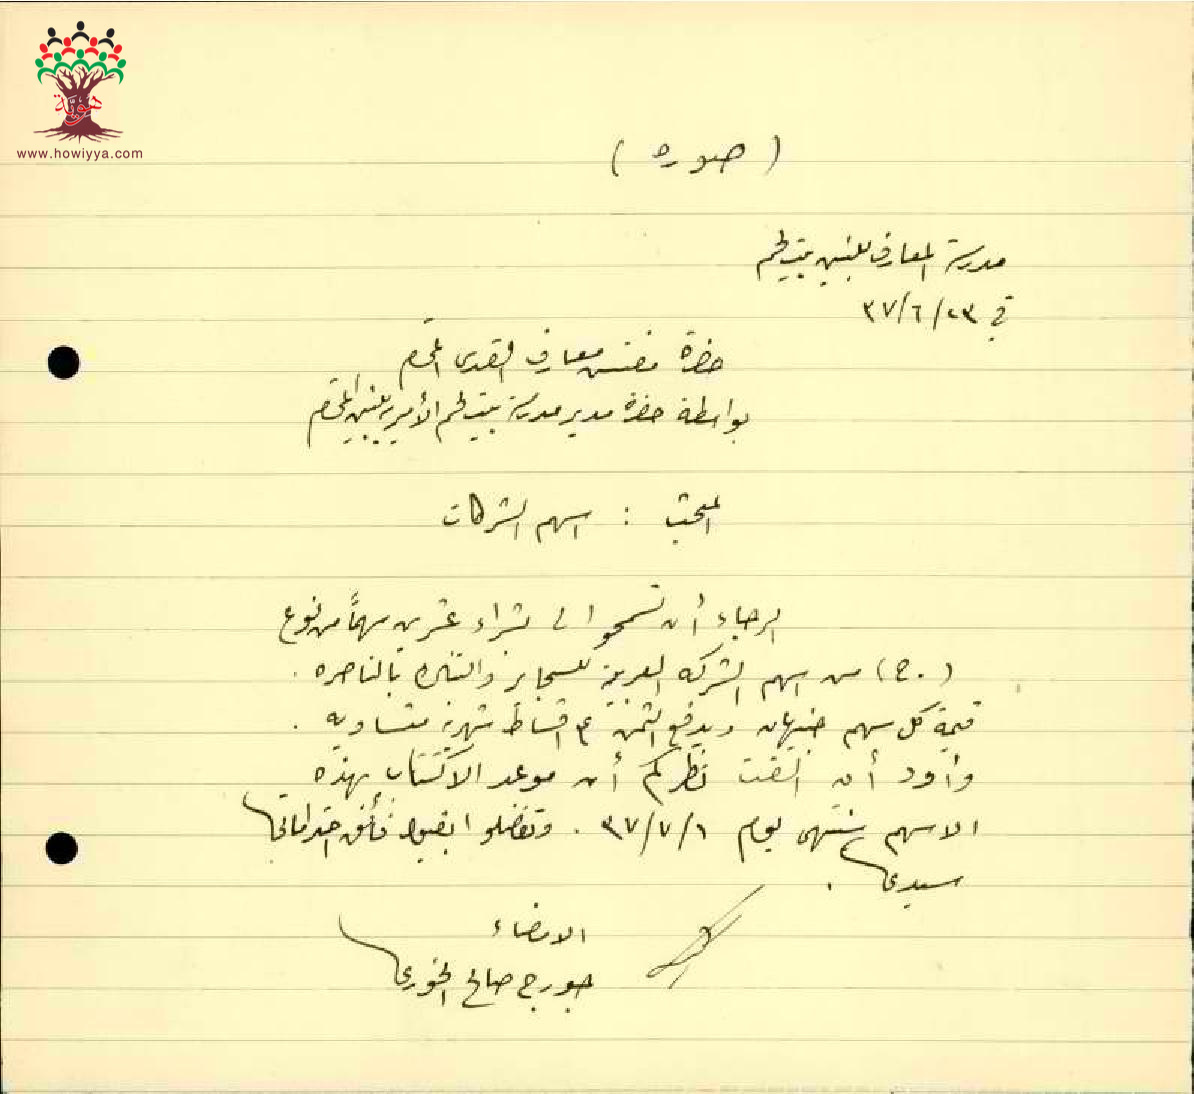 هوية
www.howiyya.com
( صوره )
مدرسة المعارف للبنين ببيت لحم
في ٢٣/٦/٣٧
حضرة مفتش معارف القدس المحترم
بواسطة حضرة مدير مدرسة بيت لحم الأميرية للبنين المحترم
المبحث : اسهم الشركات
الرجاء أن تسمحوا لي بشراء عشرين سهماً من نوع
(ج) من اسهم الشركه العربية للسجاير والتنباك بالناصره .
قيمة كل سهم جنيهان ويدفع الثمن ٤ اقساط شهرية متساويه .
وأود أن ألفت نظركم أن موعد الاكتتاب بهذه
الاسهم ينتهي يوم ٣٧/٧/١ . وتفضلوا بقبول فائق احتراماتي
سيدي .
الامضاء
جورج صالح الخوري